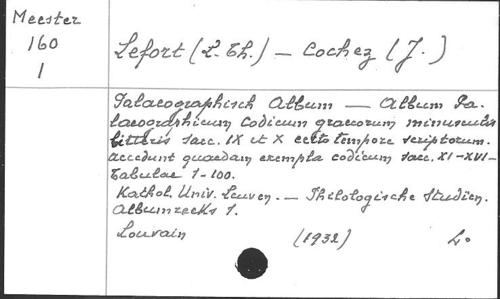 Meester
160
1
Lefort (L. Th.) — Cochez (J.)
Palaeographisch Album — Album Pa-
laeographicum Codicum graecorum minusculis
litteris saec. IX et X certo tempore scriptorum.
accedunt quaedam exempla codicum saec. XI-XVI-
Tabulae 1-100.
Kathol. Univ. Leuven. — Philologische Studien.
Albumreeks 1.
Louvain (1932) 4°